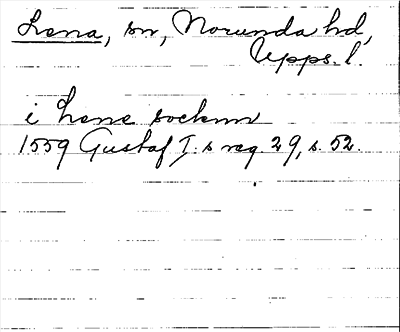 Lena, sn, Norunda hd,
Upps. l.
i Lene socknn
1559 Gustaf I:s reg. 29, s. 52.